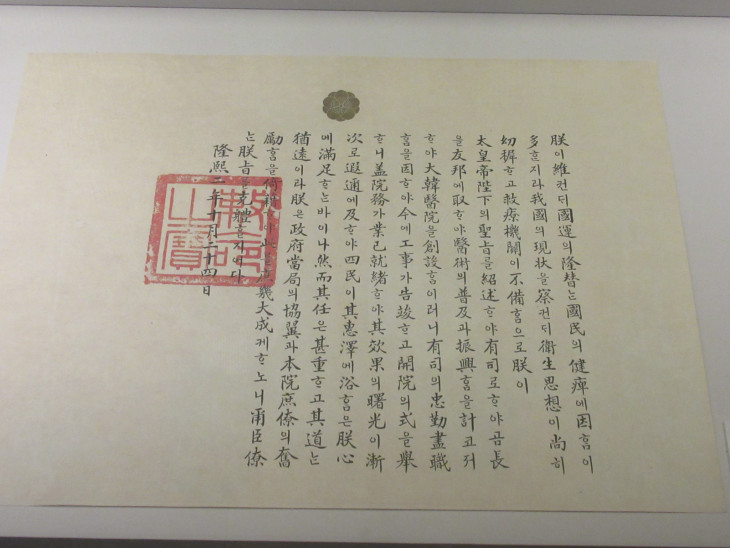 朕이維컨ᄃᆡ國運의隆替는國民의健瘁에因홈이
多ᄒᆞᆫ지라我國의現狀을察컨ᄃᆡ衛生思想이尙히
幼穉ᄒᆞ고救療機關이不備홈으로朕이
太皇帝陛下의聖旨를紹述ᄒᆞ야有司로ᄒᆞ야곰長
을友邦에取ᄒᆞ야醫術의普及과振興홈을計코져
ᄒᆞ야大韓醫院을創設홈이러니有司의忠勤盡職
홈을因ᄒᆞ야今에工事가告竣ᄒᆞ고開院의式을擧
ᄒᆞ니盖院務가業已就緖ᄒᆞ야其效果의曙光이漸
次로遐邇에及ᄒᆞ야四民이其惠澤에浴홈은朕心
에滿足ᄒᆞ는바이나然而其任은甚重ᄒᆞ고其道는
猶遠이라朕은政府當局의協翼과本院庶僚의奮
勵홈을倚賴ᄒᆞ야此 庶幾大成케ᄒᆞ노니爾臣僚
는朕旨를克體ᄒᆞᆯ지어다
隆熙二年十月二十四日
敕命之寶